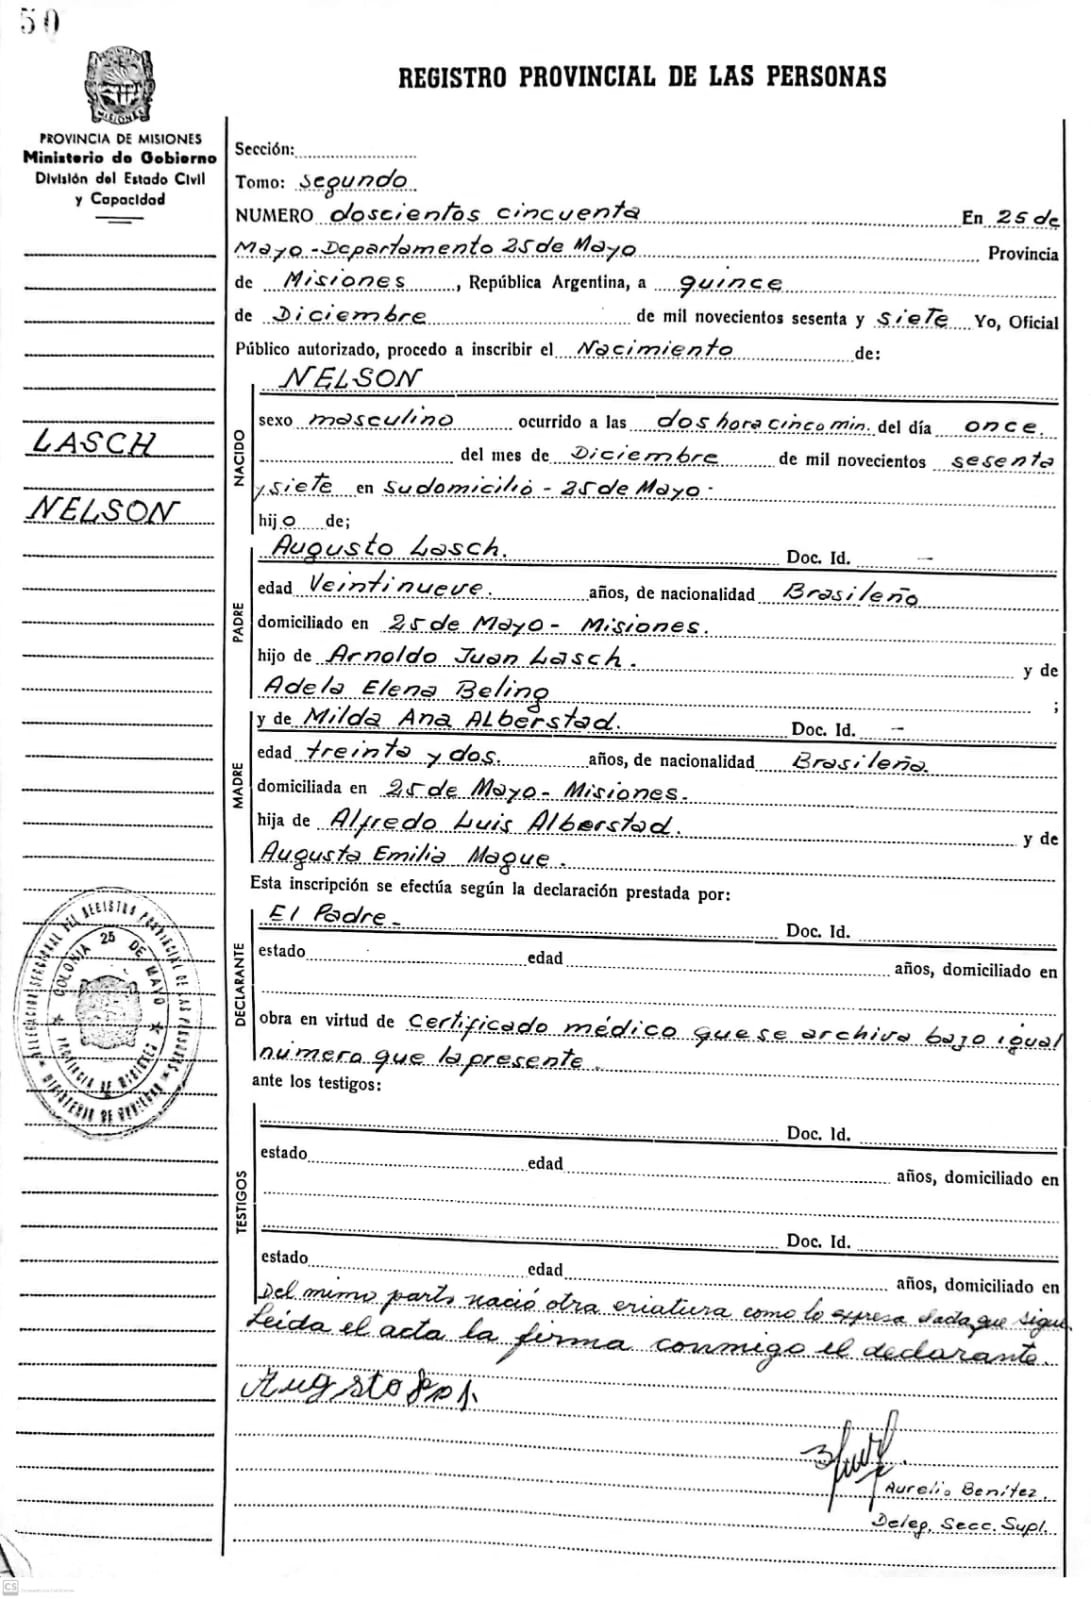 50
REGISTRO PROVINCIAL DE LAS PERSONAS
MISIONES
PROVINCIA DE MISIONES
Ministerio de Gobierno
División del Estado Civil
y Capacidad
LASCH
NELSON
Sección:
Tomo: Segundo
NUMERO doscientos cincuenta En 25 de
Mayo - Departamento 25 de Mayo Provincia
de Misiones, República Argentina, a quince
de Diciembre de mil novecientos sesenta y siete Yo, Oficial
Público autorizado, procedo a inscribir el Nacimiento de:
NACIDO
NELSON
sexo masculino ocurrido a las dos hora cinco min. del día once.
del mes de Diciembre de mil novecientos sesenta
y siete en su domicilio - 25 de Mayo -
hijo de;
PADRE
Augusto Lasch. Doc. Id. —
edad Veintinueve. años, de nacionalidad Brasileño
domiciliado en 25 de Mayo - Misiones.
hijo de Arnoldo Juan Lasch. y de
Adela Elena Beling ;
MADRE
y de Milda Ana Alberstad. Doc. Id. —
edad treinta y dos. años, de nacionalidad Brasileña.
domiciliada en 25 de Mayo - Misiones.
hija de Alfredo Luis Alberstad. y de
Augusta Emilia Mague.
Esta inscripción se efectúa según la declaración prestada por:
DECLARANTE
El Padre- Doc. Id.
estado edad años, domiciliado en
obra en virtud de Certificado médico que se archiva bajo igual
número que la presente.
ante los testigos:
TESTIGOS
Doc. Id.
estado edad años, domiciliado en
Doc. Id.
estado edad años, domiciliado en
Del mimo parto nació otra criatura como lo expresa el acta que sigue
Leída el acta la firma conmigo el declarante.
Augusto
Aurelio Benítez.
Deleg. Secc. Supl.
DELEGACION SECCIONAL DEL REGISTRO PROVINCIAL DE LAS PERSONAS
MINISTERIO DE GOBIERNO
COLONIA 25 DE MAYO
PROVINCIA DE MISIONES
CS